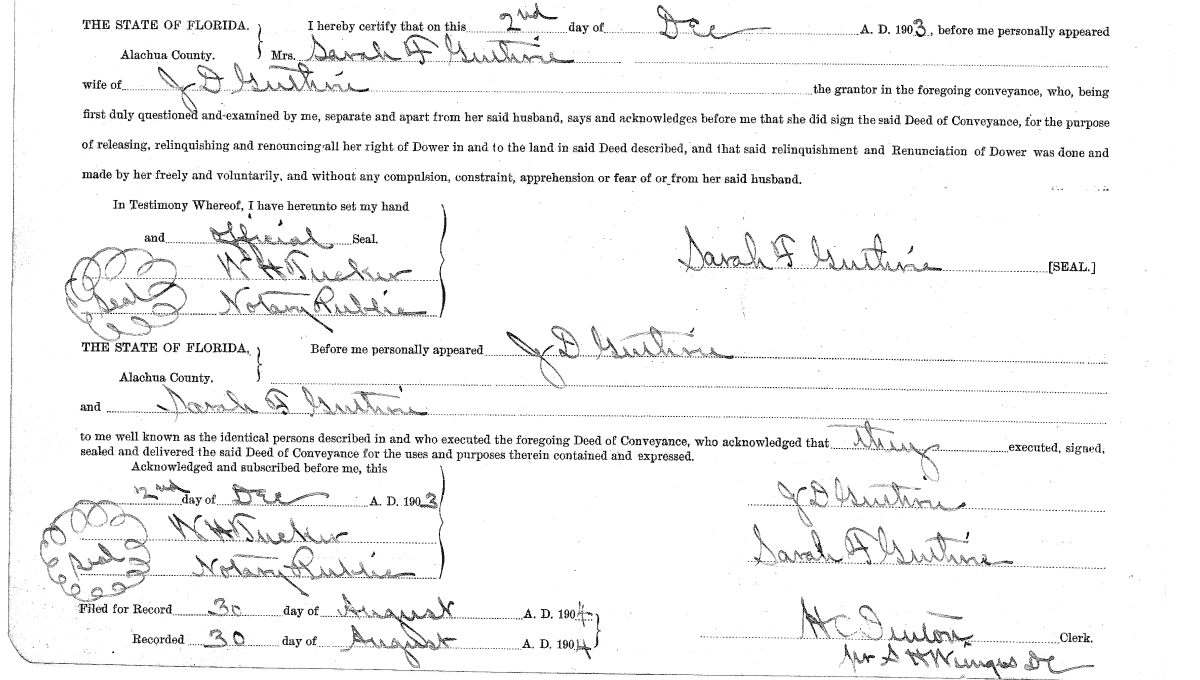 THE STATE OF FLORIDA. I hereby certify that on this 2nd day of Dec A. D. 1903, before me personally appeared
Alachua County. Mrs. Sarah F Guthrie
wife of J D Guthrie the grantor in the foregoing conveyance, who, being
first duly questioned and examined by me, separate and apart from her said husband, says and acknowledges before me that she did sign the said Deed of Conveyance, for the purpose
of releasing, relinquishing and renouncing all her right of Dower in and to the land in said Deed described, and that said relinquishment and Renunciation of Dower was done and
made by her freely and voluntarily, and without any compulsion, constraint, apprehension or fear of or from her said husband.
In Testimony Whereof, I have hereunto set my hand
and official Seal.
W H Tucker
Seal Notary Public
Sarah F Guthrie [SEAL.]
THE STATE OF FLORIDA, Before me personally appeared J D Guthrie
Alachua County.
and Sarah F Guthrie
to me well known as the identical persons described in and who executed the foregoing Deed of Conveyance, who acknowledged that they executed, signed,
sealed and delivered the said Deed of Conveyance for the uses and purposes therein contained and expressed.
Acknowledged and subscribed before me, this
2nd day of Dec A. D. 1903
W H Tucker
Seal Notary Public
J D Guthrie
Sarah F Guthrie
Filed for Record 30 day of August A. D. 1904
Recorded 30 day of August A. D. 1904
H C Denton Clerk.
per S H Wienges D C